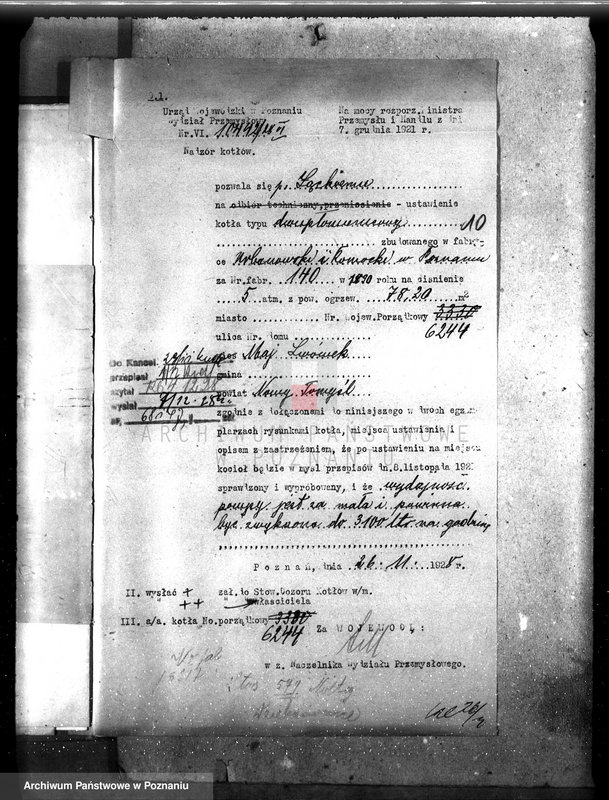 Urząd Wojewódzki w Poznaniu
Wydział Przemysłowy
Nr.VI.
Nadzór kotłów.
Na mocy rozporz. Ministra
Przemysłu i Handlu z dn.
7. grudnia 1921 r.
pozwala się p.
na odbiór techniczny,przeniesienie - ustawienie
kotła typu dwupłomienicowy 10
zbudowanego w fabry-
ce Urbanowski i Romocki w Poznaniu
za Nr.fabr. 140 w 1890 roku na ciśnienie
5 atm. z pow. ogrzew. 78.20 m2
miasto Nr. Wojew.Porządkowy 3380
6244
ulica Nr. domu
Maj. Lwówek
gmina
powiat Nowy Tomyśl
zgodnie z dołączonemi do niniejszego w dwoch egzem
plarzach rysunkami kotła, miejsca ustawienia i
opisem z zastrzeżeniem, że po ustawieniu na miejscu
kocioł będzie w myśl przepisów dn.8.listopada 192
sprawdzony i wypróbowany, i że wydajność
pompy jest za mała i powinna
być zwiększona do 3100 ltr. na godzinę
Poznań, dnia 26. 11. 1928 r.
Do Kancel.
przepisał
czytał
wysłał 7/12.28
II. wysłać + zał. do Stow.Dozoru Kotłów w/m.
++ właściciela
III. a/a. kotła No.porządkowy 3380
6244
Za WOJEWODĘ:
w z. Naczelnika Wydziału Przemysłowego.
ARCHIWUM PAŃSTWOWE
W POZNANIU
Archiwum Państwowe w Poznaniu